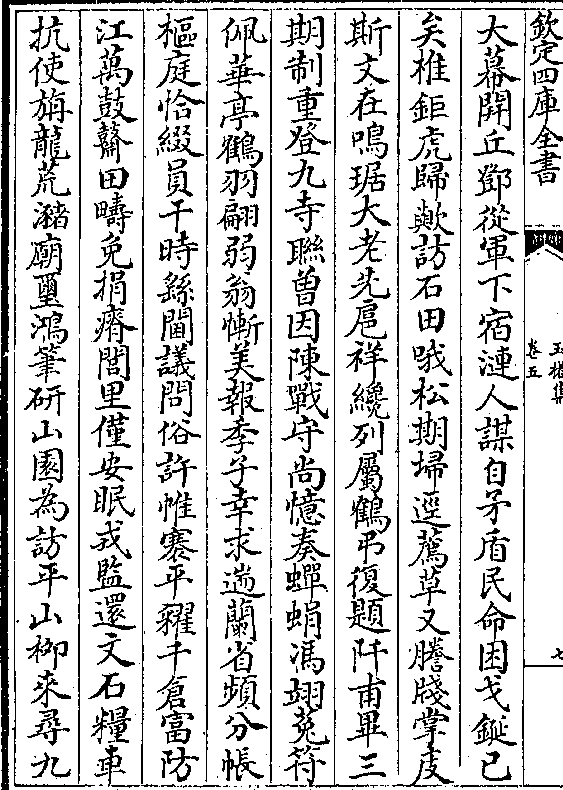 欽定四庫全書
玉楮集
卷五
七
大幕開丘鄧從軍下宿漣人謀自矛盾民命困戈鋋已
矣椎鉅虎歸歟訪石田哦松期埽逕薦草又謄牋掌庋
斯文在鳴琚大老先扈祥纔列屬鶴弔復題阡甫畢三
期制重登九寺聯曾因陳戰守尚憶奏蟬蜎馮翊菟符
佩華亭鶴羽翩弱翁慚美報季子幸求遄蘭省頻分帳
樞庭恰綴員干時繇閫議問俗許帷褰平糴千倉富防
江萬鼓鼛田疇免捐瘠閭里僅安眠戎監還文石糧車
抗使旃龍荒瀦廟壐鴻筆研山園為訪平山柳來尋九